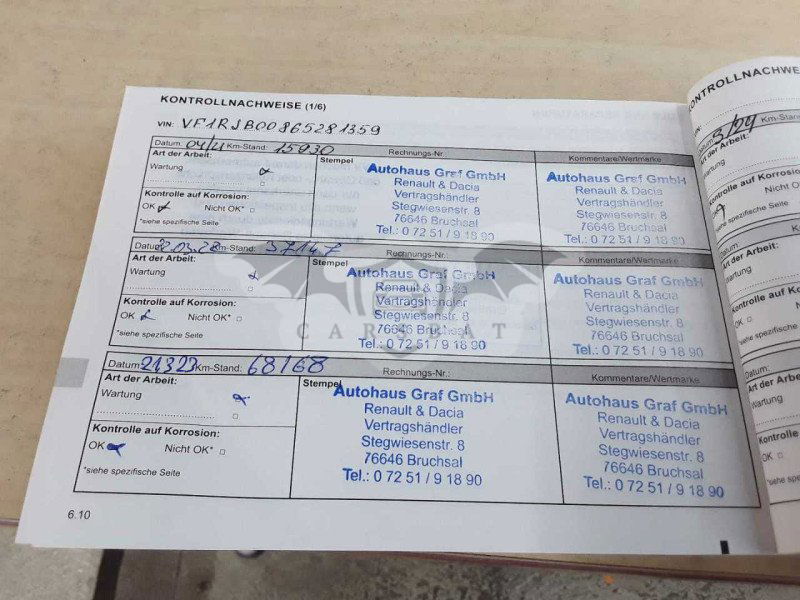 KONTROLLNACHWEISE (1/6)
VIN: VF1RJB00865281359
Datum: 04/21 Km-Stand: 15930 Rechnungs-Nr. Kommentare/Wertmarke
Art der Arbeit: Stempel
Wartung
Kontrolle auf Korrosion:
OK Nicht OK*
*siehe spezifische Seite
Autohaus Graf GmbH
Renault & Dacia
Vertragshändler
Stegwiesenstr. 8
76646 Bruchsal
Tel.: 0 72 51 / 9 18 90
Autohaus Graf GmbH
Renault & Dacia
Vertragshändler
Stegwiesenstr. 8
76646 Bruchsal
Tel.: 0 72 51 / 9 18 90
Datum: Km-Stand: 37147 Rechnungs-Nr.: Kommentare/Wertmarke
Art der Arbeit: Stempel
Wartung
Kontrolle auf Korrosion:
OK Nicht OK*
*siehe spezifische Seite
Autohaus Graf GmbH
Renault & Dacia
Vertragshändler
Stegwiesenstr. 8
76646 Bruchsal
Tel.: 0 72 51 / 9 18 90
Autohaus Graf GmbH
Renault & Dacia
Vertragshändler
Stegwiesenstr. 8
76646 Bruchsal
Tel.: 0 72 51 / 9 18 90
Datum: 21.3.23 Km-Stand: 68168 Rechnungs-Nr.: Kommentare/Wertmarke
Art der Arbeit: Stempel
Wartung
Kontrolle auf Korrosion:
OK Nicht OK*
*siehe spezifische Seite
Autohaus Graf GmbH
Renault & Dacia
Vertragshändler
Stegwiesenstr. 8
76646 Bruchsal
Tel.: 0 72 51 / 9 18 90
Autohaus Graf GmbH
Renault & Dacia
Vertragshändler
Stegwiesenstr. 8
76646 Bruchsal
Tel.: 0 72 51 / 9 18 90
6.10
KONTROLLNACHWE
VIN:
Datum: 3/24 Km-Stand
Art der Arbeit:
Wartung
Kontrolle auf Korrosion
Nicht OK
*siehe spezifische Seite
Datum: Km-Stan
Art der Arbeit:
Wartung
Kontrolle auf Korrosio
OK Nicht O
*siehe spezifische Seite
Datum: Km-St
Art der Arbeit:
Wartung
Kontrolle
OK
*siehe spezifische